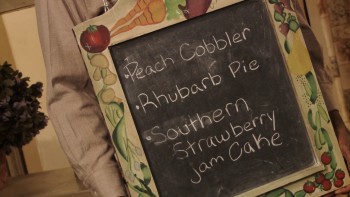 •Peach Cobbler
•Rhubarb Pie
•Southern
Strawberry
jam Cake